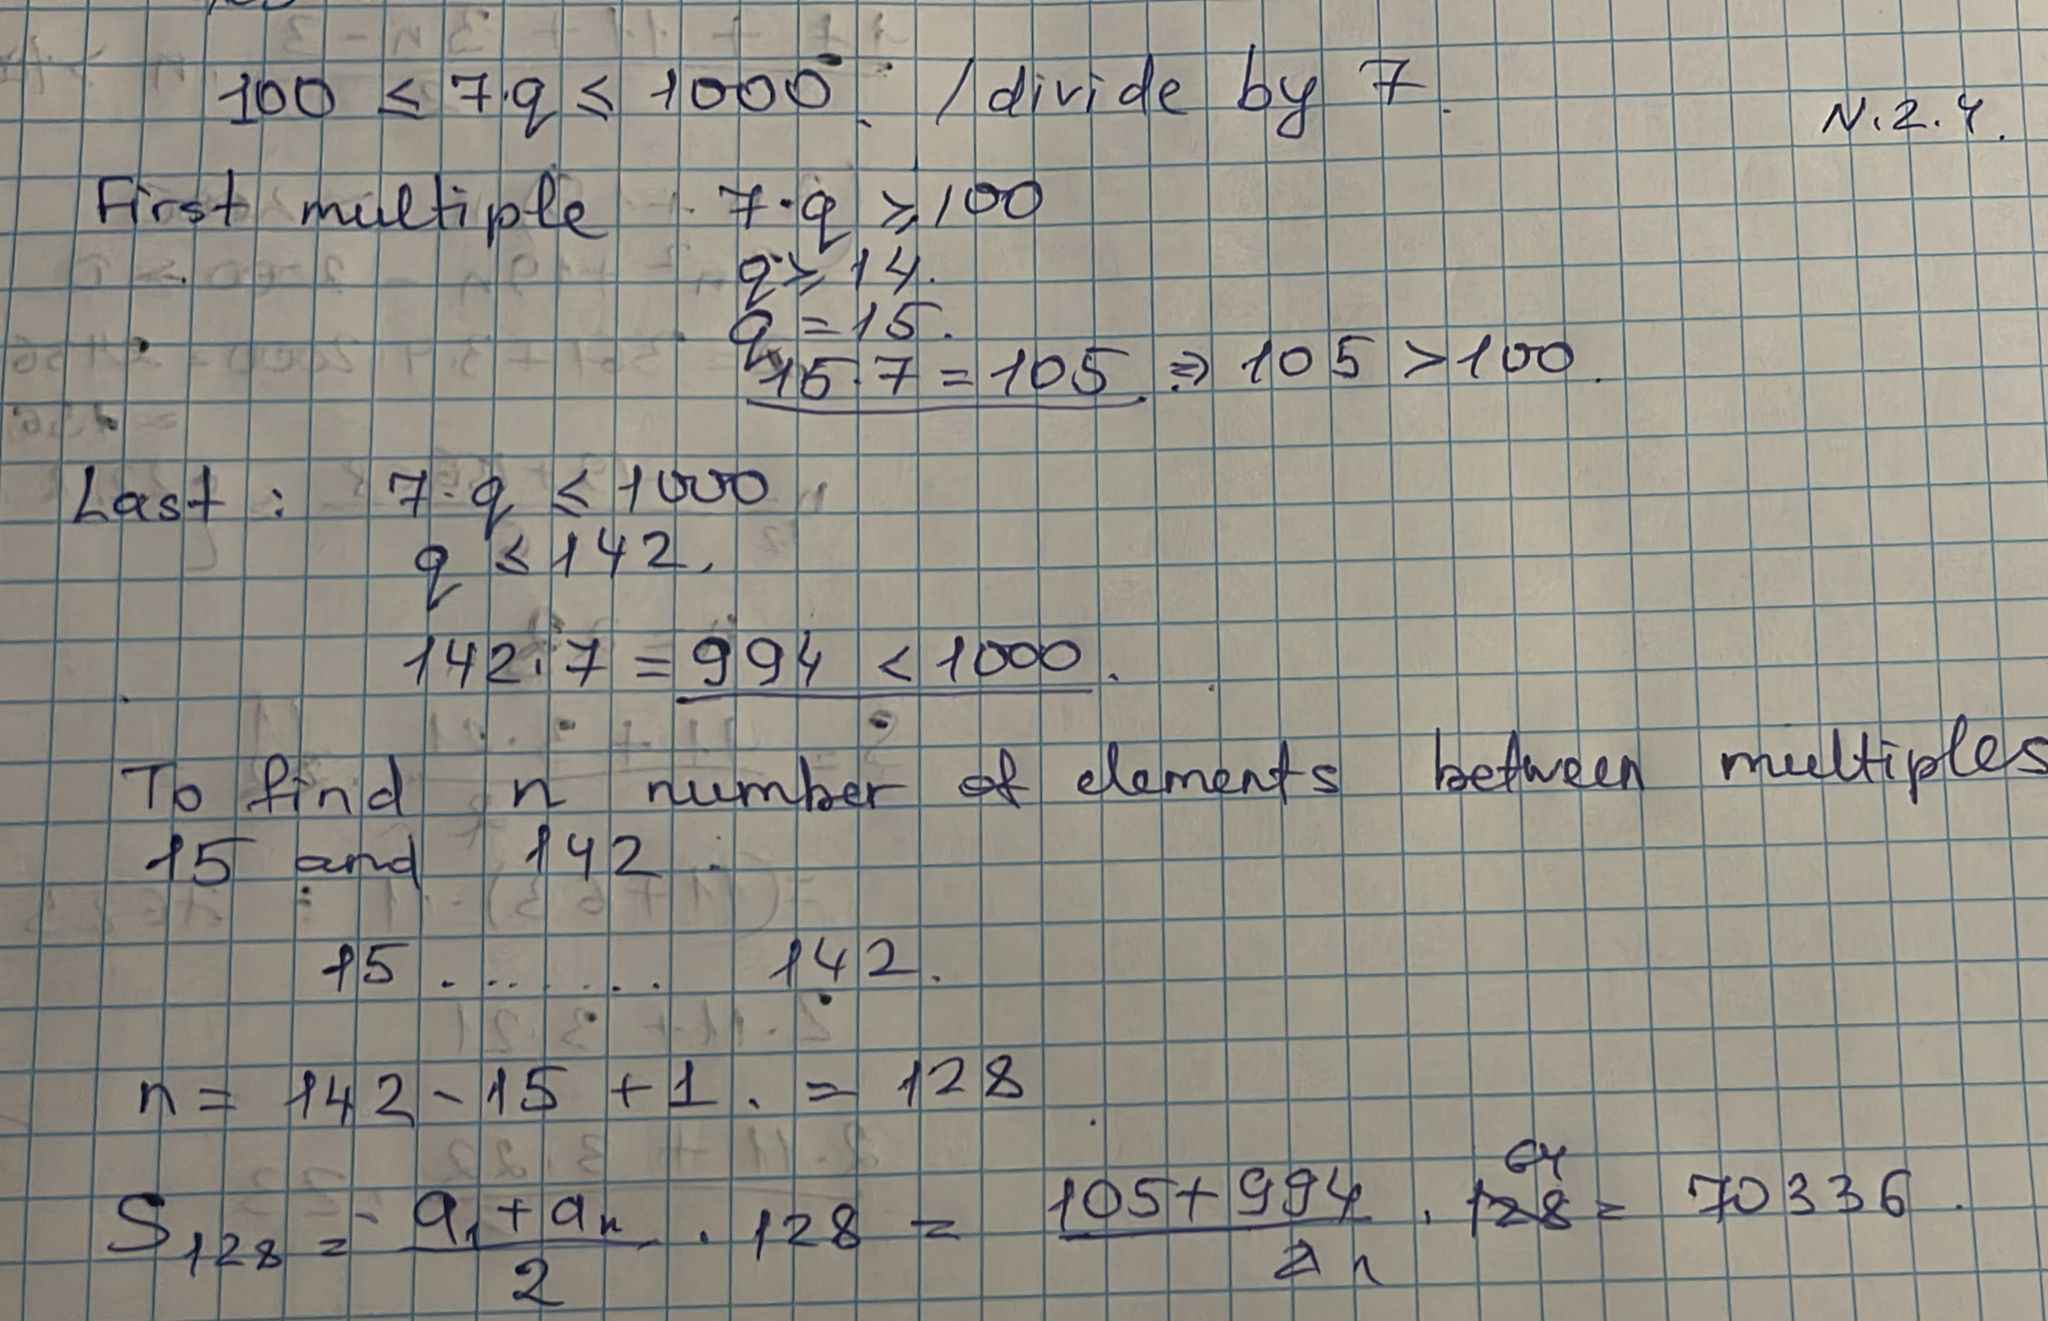 100 ≤ 7·q ≤ 1000. / divide by 7.
N.2.4.
First multiple 7·q ≥ 100
q ≥ 14.
q = 15.
15·7 = 105 ⇒ 105 > 100.
Last: 7·q ≤ 1000
q ≤ 142.
142·7 = 994 < 1000.
To find n number of elements between multiples
15 and 142.
15 ....... 142.
n = 142 - 15 + 1. = 128
S₁₂₈ = (a₁ + aₙ)/2 · 128 = (105 + 994)/2 · 128 64 = 70336.